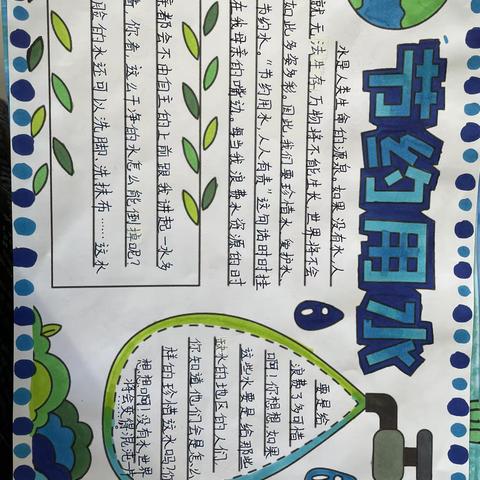 节约用水
水是人类生命的源泉。如果没有水人
就无法生存,万物将不能生长,世界将不会
如此多姿多彩。因此,我们要珍惜水,爱护水,
节约水。“节约用水,人人有责”这句话时时挂
在我母亲的嘴边。每当我浪费水资源的时
都会不由自主的上前跟我讲起一水多
你看,这么干净的水怎么能倒掉呢?
脸的水还可以洗脚、洗抹布……这水
要是给
浪费了多可惜
啊!你想想,如果
这些水要是给那些
缺水的地区的人们
你知道他们会是怎么
样的珍惜这水吗?你
想想啊!没有水世界
将会变得混沌一